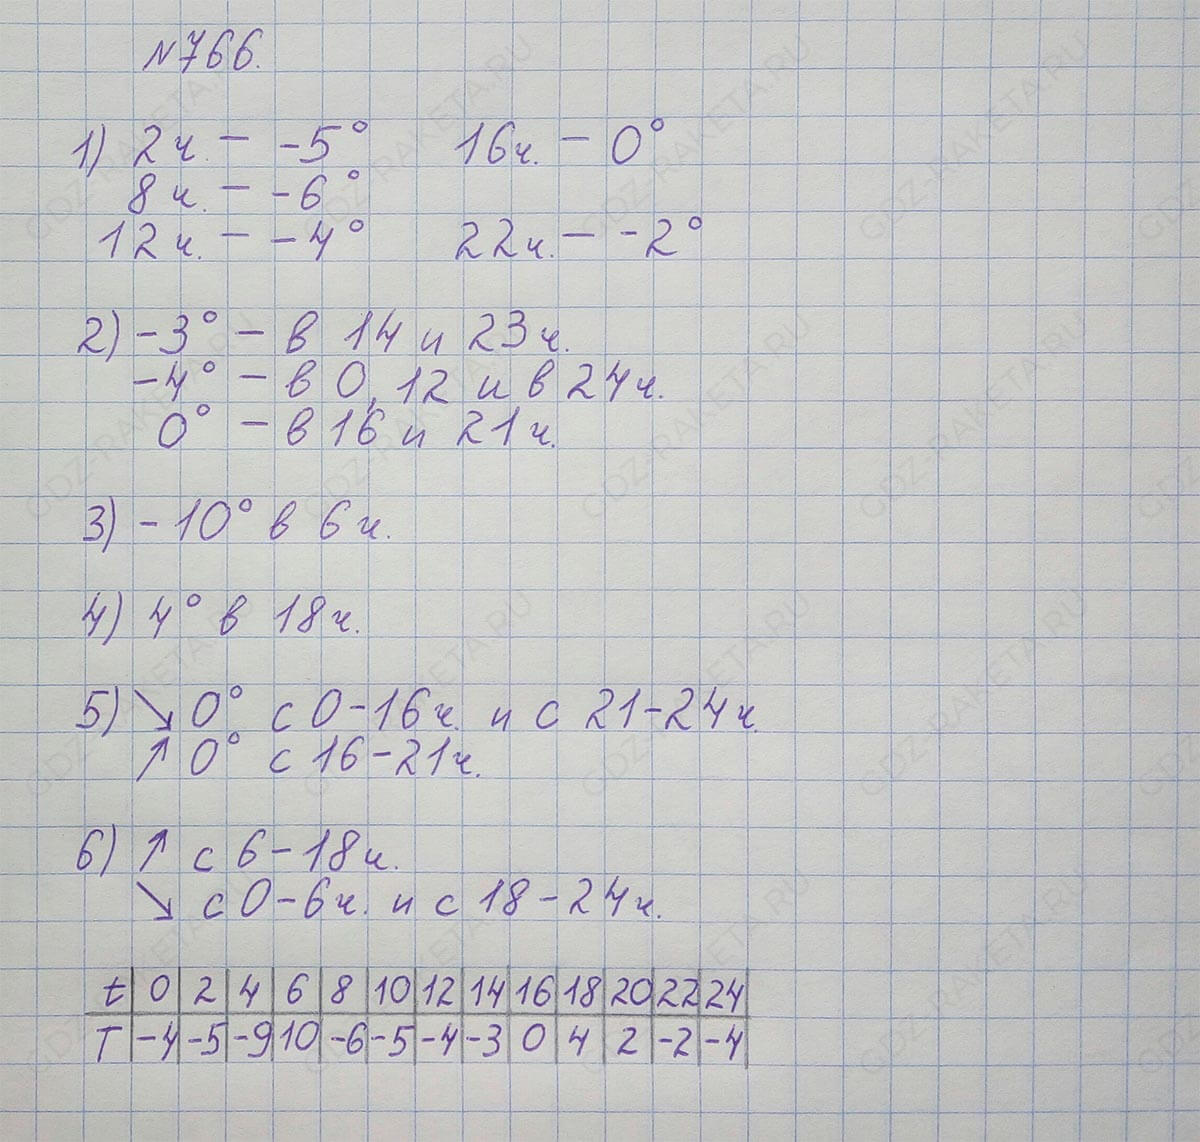 №766.
1) 2ч. – -5°   16ч. – 0°
8ч. – -6°
12ч. – -4°   22ч. – -2°
2) -3° – в 14 и 23ч.
-4° – в 0, 12 и в 24ч.
0° – в 16 и 21ч.
3) -10° в 6ч.
4) 4° в 18ч.
5) ↘ 0° с 0-16ч. и с 21-24ч.
↑ 0° с 16-21ч.
6) ↑ с 6-18ч.
↘ с 0-6ч. и с 18-24ч.
t 0 2 4 6 8 10 12 14 16 18 20 22 24
T -4 -5 -9 10 -6 -5 -4 -3 0 4 2 -2 -4
GDZ-RAKETA.RU